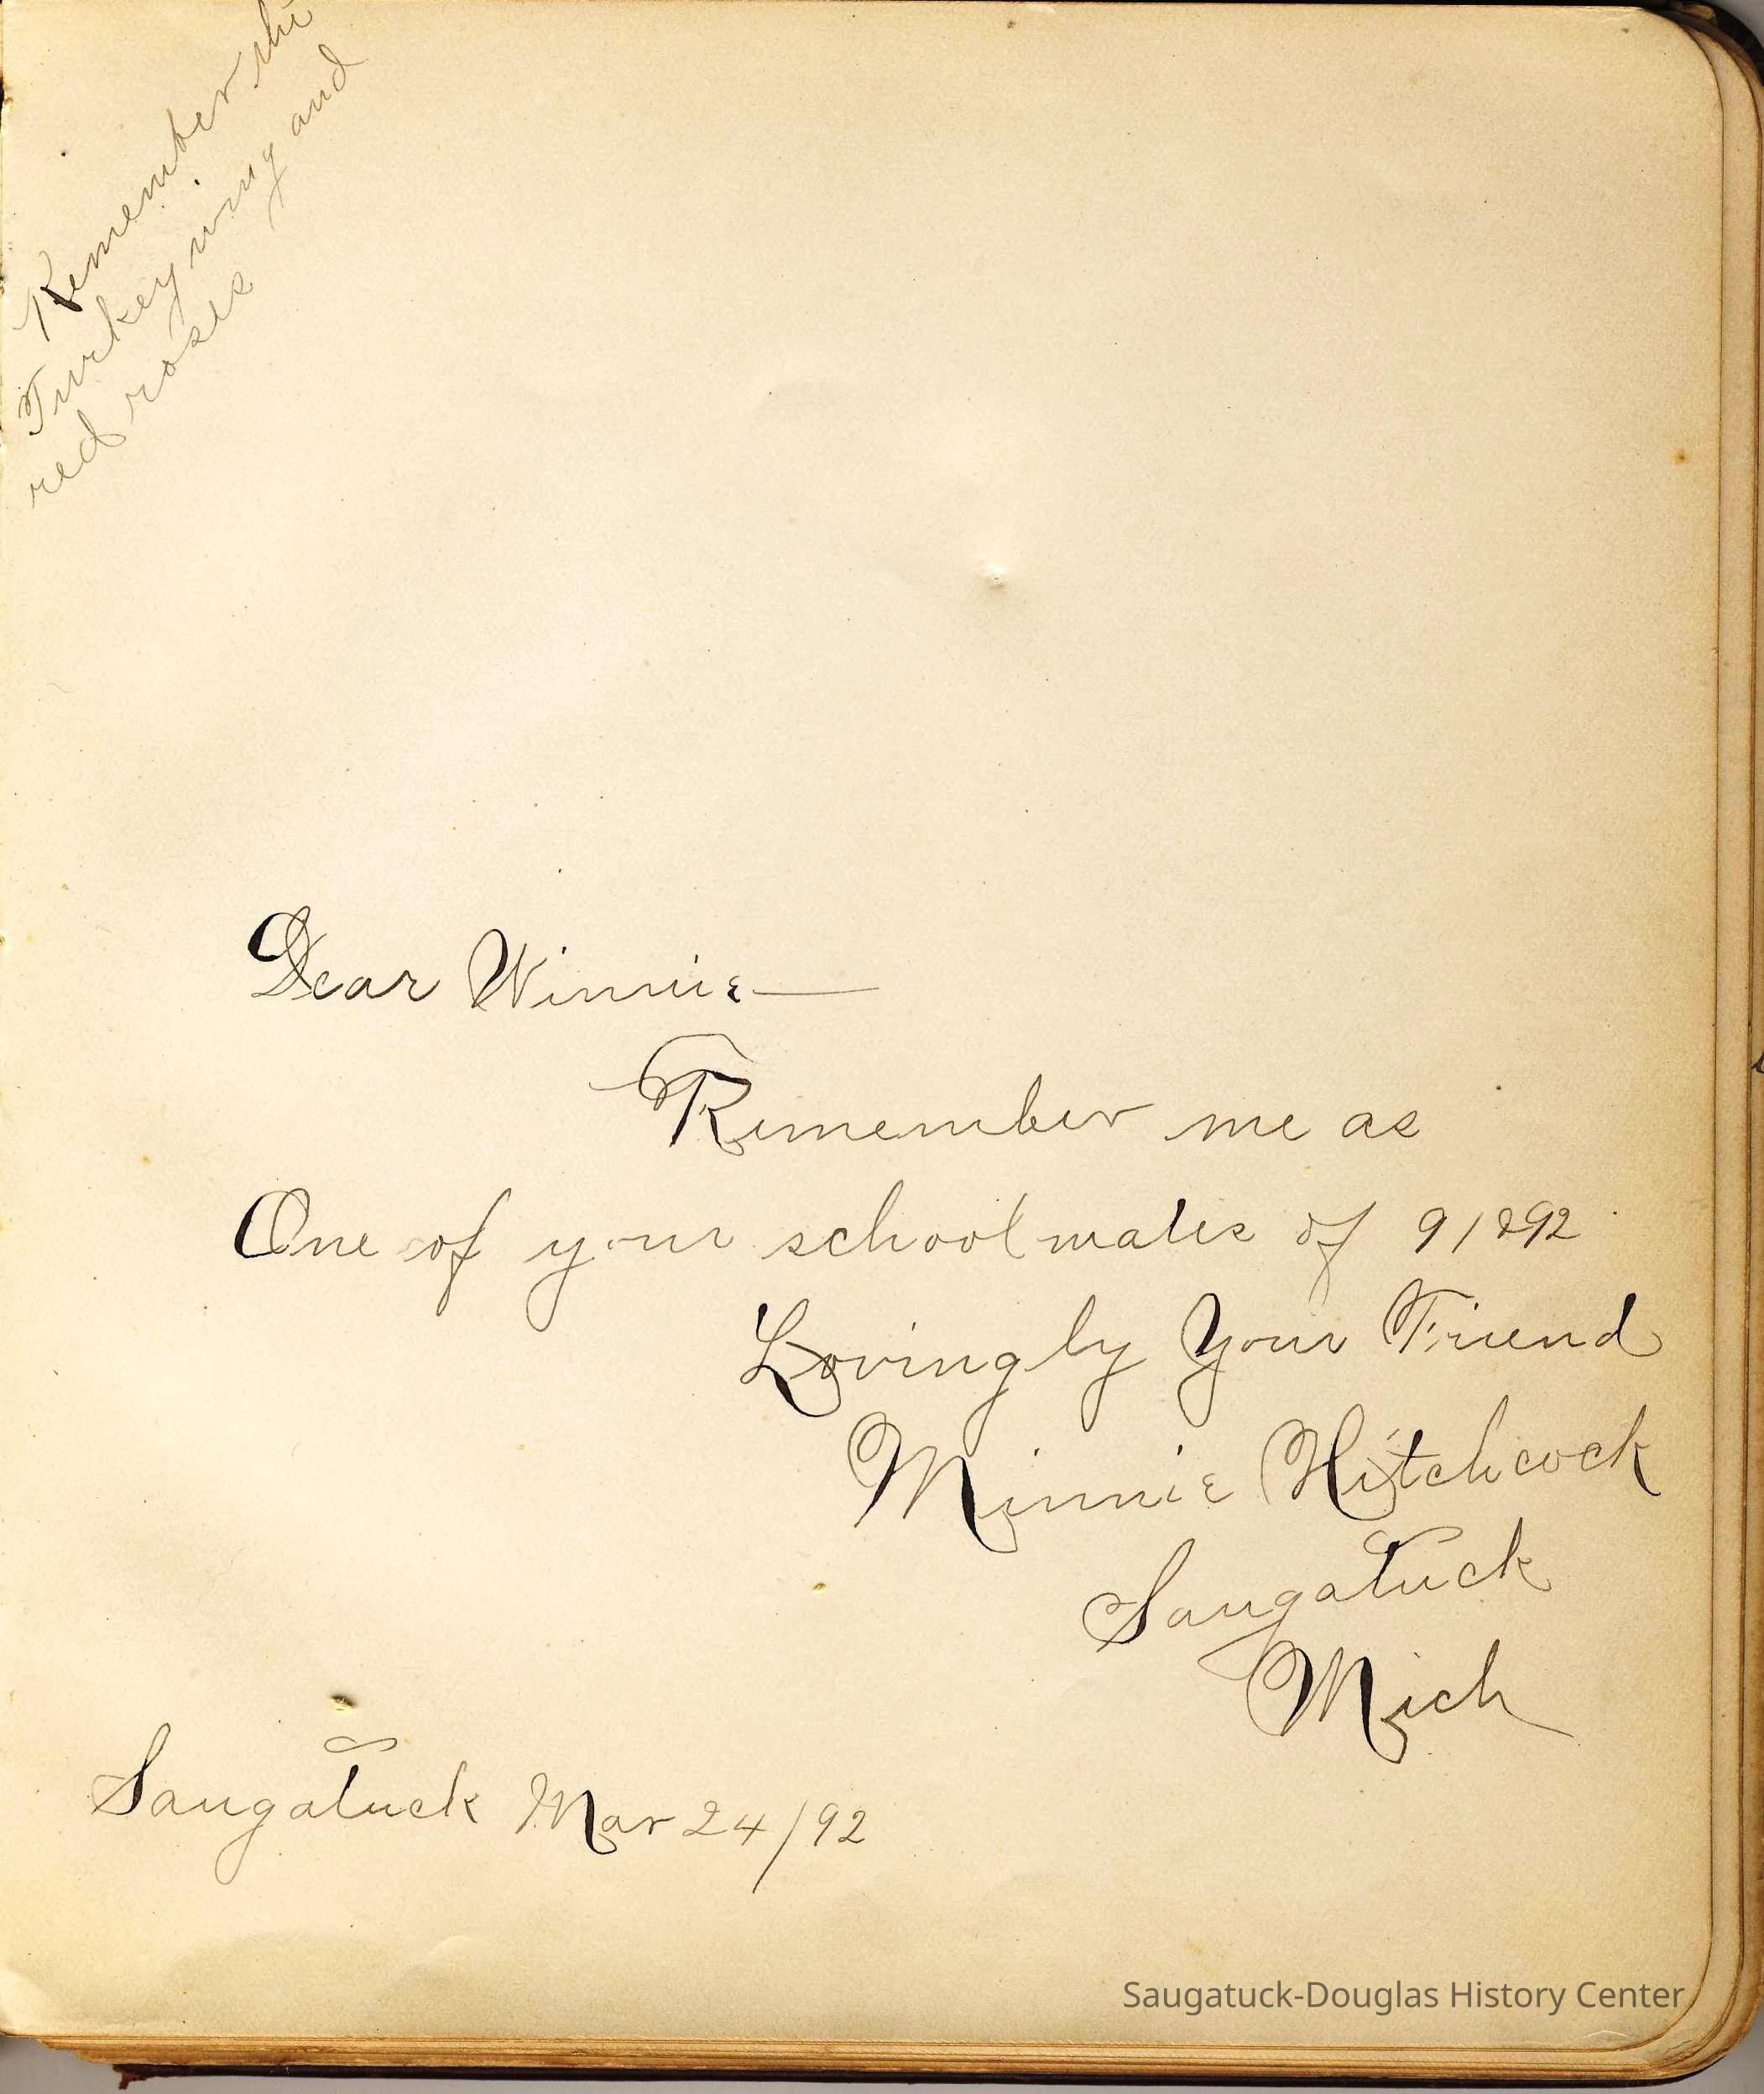 Remember the
Turkey wing and
red roses
Dear Winnie
Remember me as
One of your schoolmates of 91&92
Lovingly Your Friend
Minnie Hitchcock
Saugatuck
Mich
Saugatuck Mar 24/92
Saugatuck-Douglas History Center